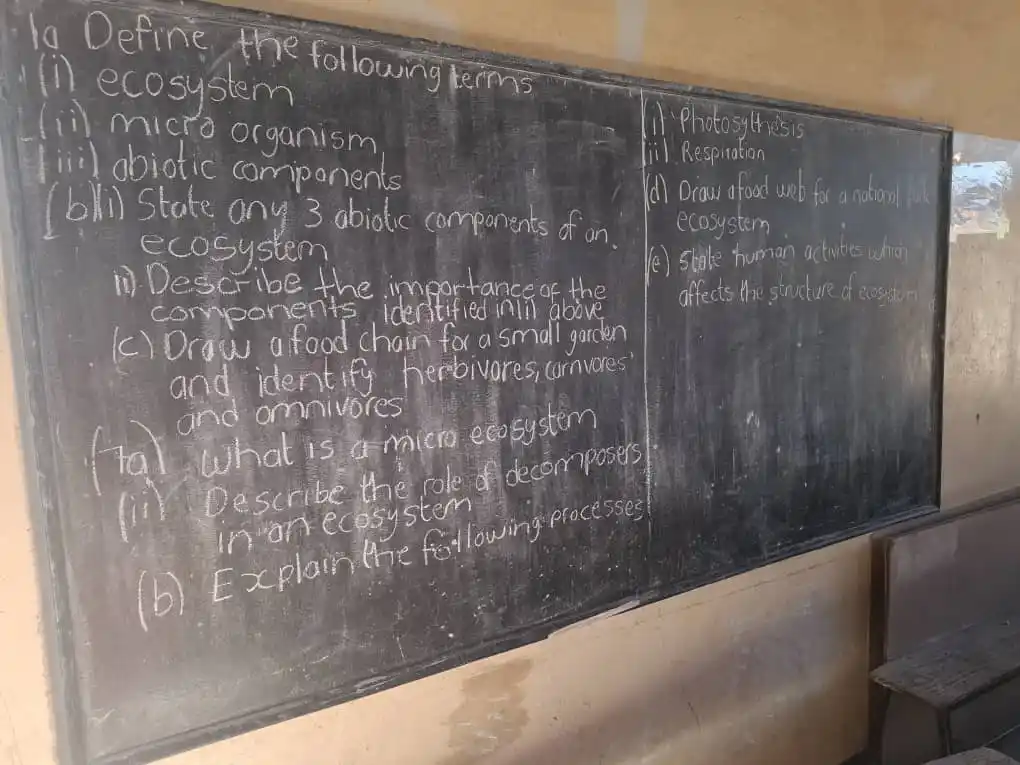 1a Define the following terms
(i) ecosystem
(ii) micro organism
(iii) abiotic components
(b)(i) State any 3 abiotic components of an
ecosystem
ii) Describe the importance of the
components identified in above
(c) Draw a food chain for a small garden
and identify herbivores, carnvores
and omnivores
(7a) what is a micro ecosystem
(ii) Describe the role of decomposers
in an ecosystem
(b) Explain the following processes
(i) Photosythesis
(ii) Respiration
(d) Draw a food web for a national park
ecosystem
(e) State human activities which
affects the structure of ecosystem